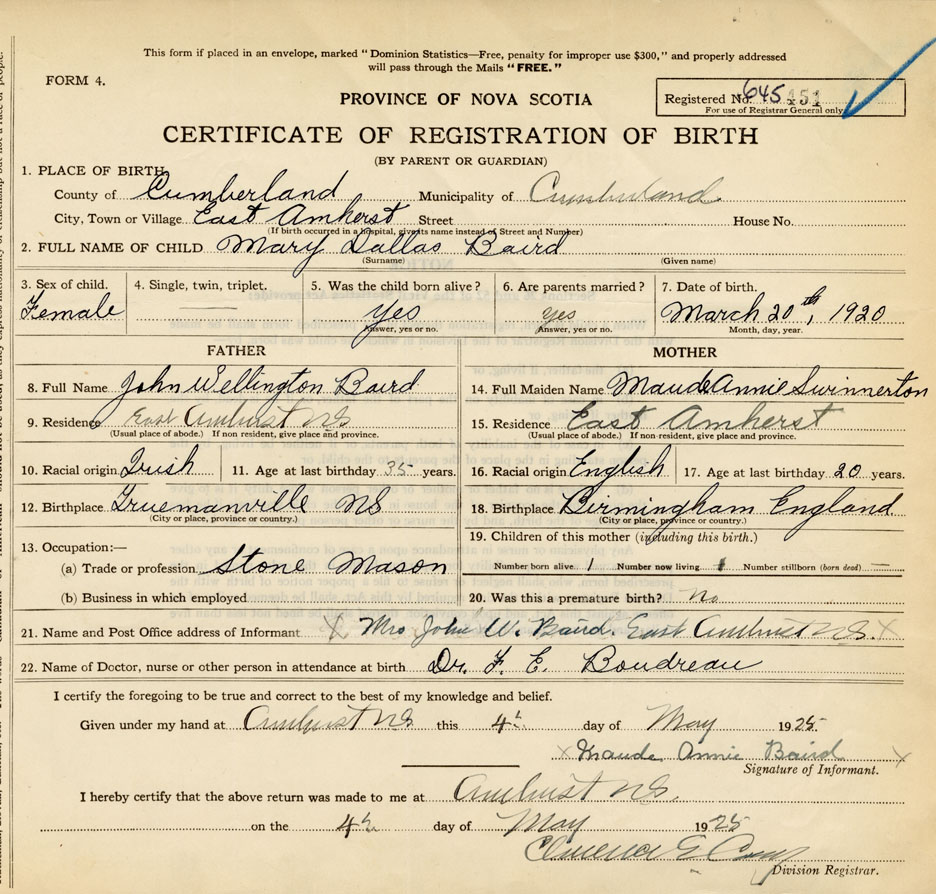 This form if placed in an envelope, marked "Dominion Statistics—Free, penalty for improper use $300," and properly addressed
will pass through the Mails "FREE."
FORM 4.
Registered No. 645 151
For use of Registrar General only
PROVINCE OF NOVA SCOTIA
CERTIFICATE OF REGISTRATION OF BIRTH
(BY PARENT OR GUARDIAN)
1. PLACE OF BIRTH
County of Cumberland Municipality of Cumberland
City, Town or Village East Amherst Street House No.
(If birth occurred in a hospital, give its name instead of Street and Number)
2. FULL NAME OF CHILD Mary Dallas Baird
(Surname) (Given name)
3. Sex of child. 4. Single, twin, triplet. 5. Was the child born alive? 6. Are parents married? 7. Date of birth.
Female yes yes March 20th, 1920
Answer, yes or no. Answer, yes or no. Month, day, year.
FATHER MOTHER
8. Full Name John Wellington Baird 14. Full Maiden Name Maude Annie Swinnerton
9. Residence East Amherst NS 15. Residence East Amherst
(Usual place of abode.) If non resident, give place and province. (Usual place of abode.) If non-resident, give place and province.
10. Racial origin Irish 11. Age at last birthday 35 years. 16. Racial origin English 17. Age at last birthday 20 years.
12. Birthplace Truemanville NS 18. Birthplace Birmingham England
(City or place, province or country.) (City or place, province or country.)
13. Occupation:— 19. Children of this mother (including this birth.)
(a) Trade or profession Stone Mason Number born alive 1 Number now living 1 Number stillborn (born dead) —
(b) Business in which employed 20. Was this a premature birth? No
21. Name and Post Office address of Informant X Mrs John W. Baird. East Amherst NS. X
22. Name of Doctor, nurse or other person in attendance at birth Dr. F. E. Boudreau
I certify the foregoing to be true and correct to the best of my knowledge and belief.
Given under my hand at Amherst NS this 4th day of May 1925
X Maude Annie Baird X
Signature of Informant.
I hereby certify that the above return was made to me at Amherst NS.
on the 4th day of May 1925
Clarence E
Division Registrar.